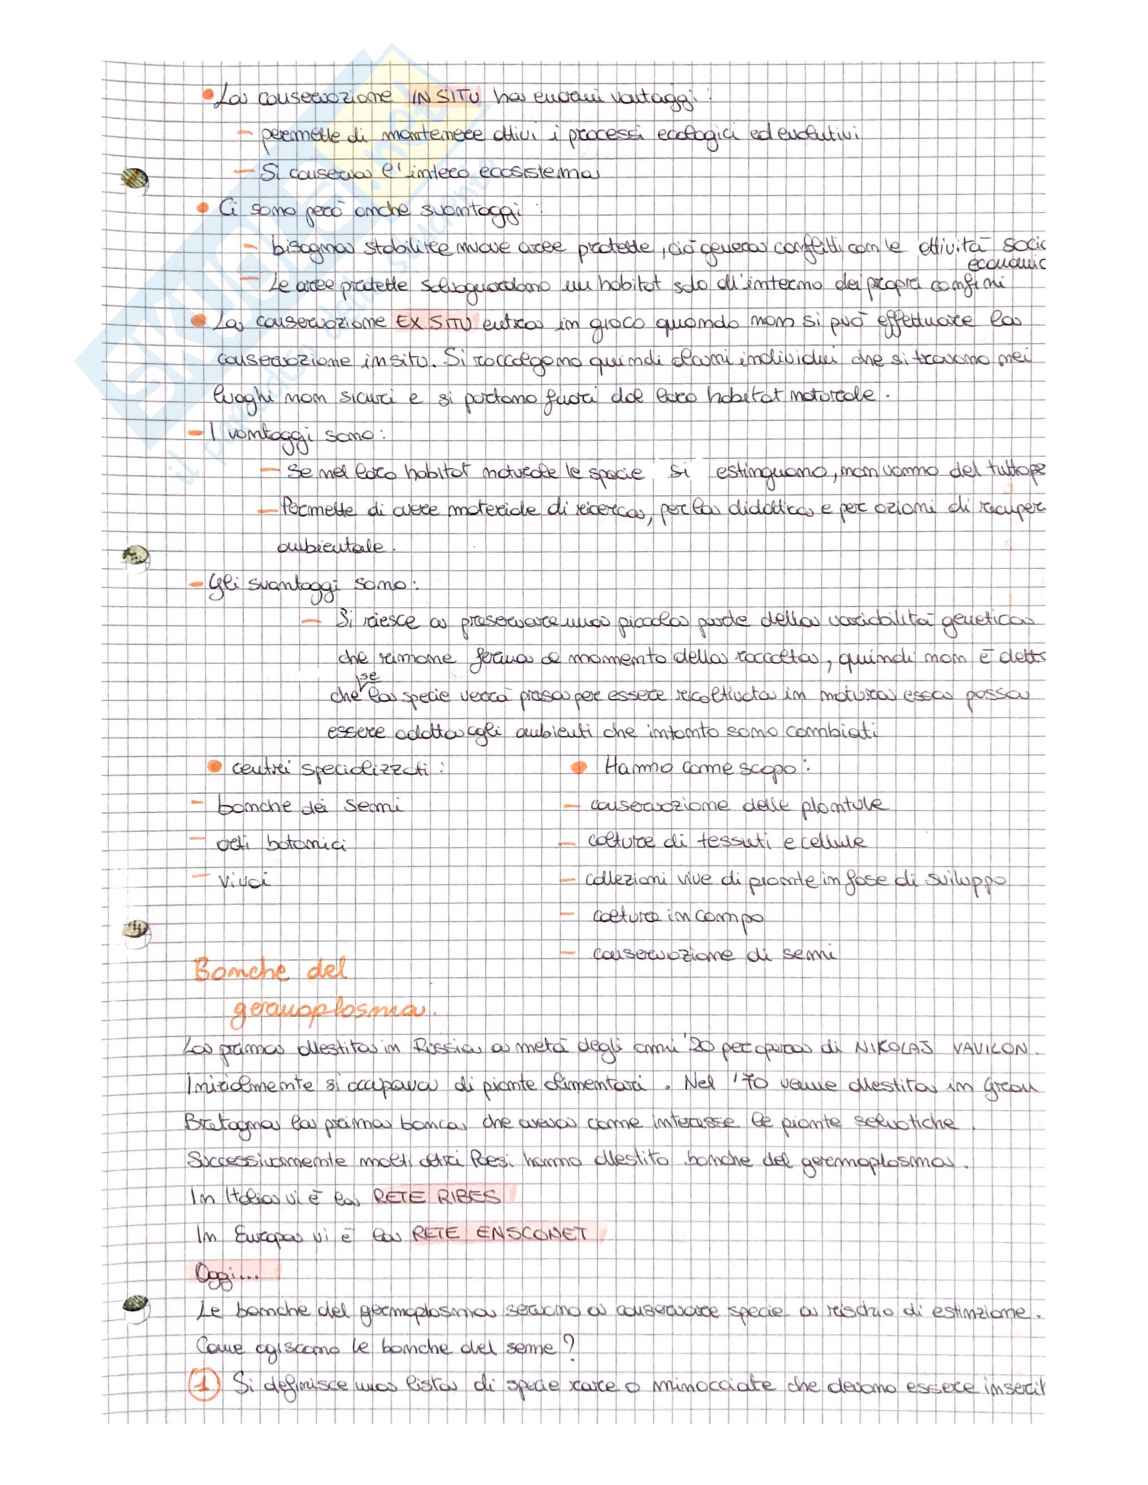 • La conservazione IN SITU ha enormi vantaggi:
– permette di mantenere attivi i processi ecologici ed evolutivi
– Si conserva l'intero ecosistema
• Ci sono però anche svantaggi:
– bisogna stabilire nuove aree protette, ciò genera conflitti con le attività socio
economic
– Le aree protette salvaguardano un habitat solo all'interno dei propri confini
• La conservazione EX SITU entra in gioco quando non si può effettuare la
conservazione in situ. Si raccolgono quindi alcuni individui che si trovano nei
luoghi non sicuri e si portano fuori dal loro habitat naturale.
– I vantaggi sono:
– Se nel loro habitat naturale le specie si estinguono, non vanno del tutto pe
– Permette di avere materiale di ricerca, per la didattica e per azioni di recuper
ambientale.
– Gli svantaggi sono:
– Si riesce a preservare una piccola parte della variabilità genetica
che rimane ferma al momento della raccolta, quindi non è detto
che se la specie verrà presa per essere ricoltivata in natura essa possa
essere adatta agli ambienti che intanto sono cambiati
• centri specializzati:
– banche dei semi
– orti botanici
– vivai
• Hanno come scopo:
– conservazione delle plantule
– colture di tessuti e cellule
– collezioni vive di piante in fase di sviluppo
– coltura in campo
– conservazione di semi
Banche del
germoplasma.
La prima allestita in Russia a metà degli anni '20 per opera di NIKOLAJ VAVILON.
Inizialmente si occupava di piante alimentari. Nel '70 venne allestita in Gran
Bretagna la prima banca che aveva come interesse le piante selvatiche.
Successivamente molti altri Paesi hanno allestito banche del germoplasma.
In Italia vi è la RETE RIBES
In Europa vi è la RETE ENSCONET
Oggi...
Le banche del germoplasma servono a conservare specie a rischio di estinzione.
Come agiscono le banche del seme?
1 Si definisce una lista di specie rare o minacciate che devono essere inserit